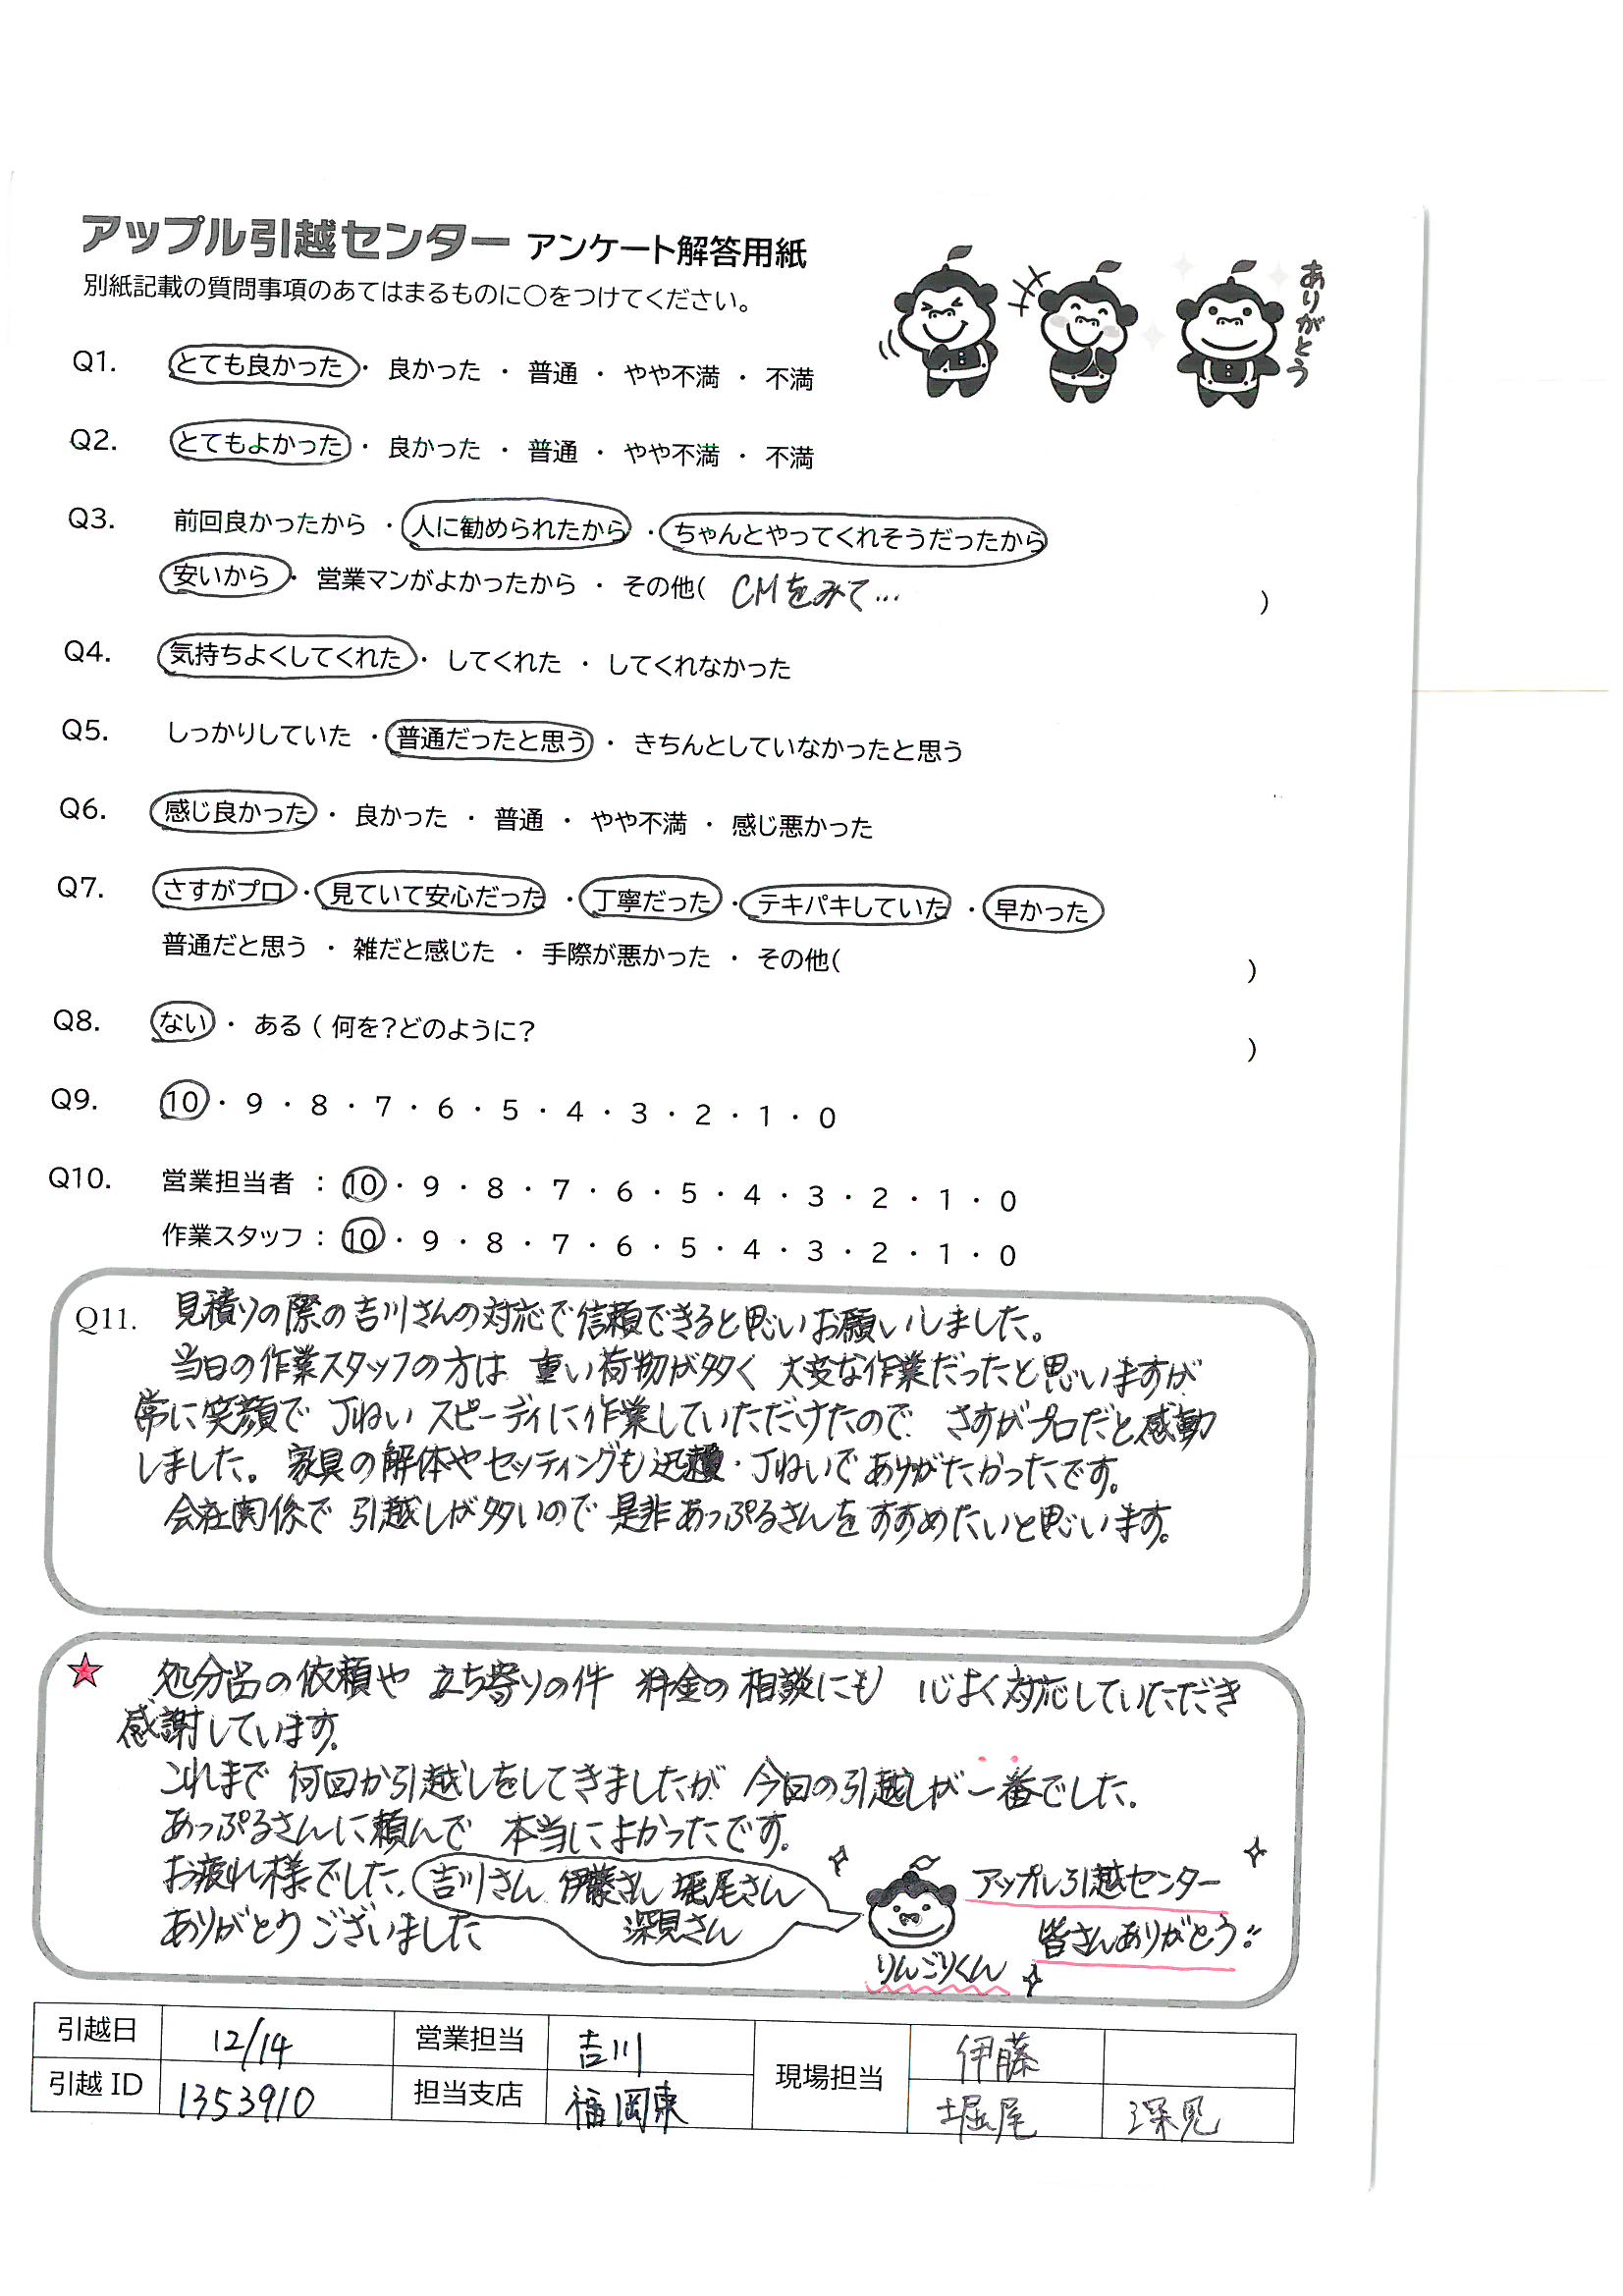 アップル引越センター アンケート解答用紙
別紙記載の質問事項のあてはまるものに○をつけてください。
ありがとう
Q1. とても良かった ・ 良かった ・ 普通 ・ やや不満 ・ 不満
Q2. とてもよかった ・ 良かった ・ 普通 ・ やや不満 ・ 不満
Q3. 前回良かったから ・ 人に勧められたから ・ ちゃんとやってくれそうだったから
安いから ・ 営業マンがよかったから ・ その他( CMをみて… )
Q4. 気持ちよくしてくれた ・ してくれた ・ してくれなかった
Q5. しっかりしていた ・ 普通だったと思う ・ きちんとしていなかったと思う
Q6. 感じ良かった ・ 良かった ・ 普通 ・ やや不満 ・ 感じ悪かった
Q7. さすがプロ ・ 見ていて安心だった ・ 丁寧だった ・ テキパキしていた ・ 早かった
普通だと思う ・ 雑だと感じた ・ 手際が悪かった ・ その他( )
Q8. ない ・ ある ( 何を?どのように? )
Q9. 10 ・ 9 ・ 8 ・ 7 ・ 6 ・ 5 ・ 4 ・ 3 ・ 2 ・ 1 ・ 0
Q10. 営業担当者 : 10 ・ 9 ・ 8 ・ 7 ・ 6 ・ 5 ・ 4 ・ 3 ・ 2 ・ 1 ・ 0
作業スタッフ : 10 ・ 9 ・ 8 ・ 7 ・ 6 ・ 5 ・ 4 ・ 3 ・ 2 ・ 1 ・ 0
Q11. 見積りの際の吉川さんの対応で信頼できると思いお願いしました。
当日の作業スタッフの方は 重い荷物が多く 大変な作業だったと思いますが
常に笑顔で 丁ねい スピーディに作業していただけたので さすがプロだと感動
しました。家具の解体やセッティングも迅速・丁ねいで ありがたかったです。
会社関係で 引越しが多いので 是非あっぷるさんをすすめたいと思います。
★ 処分品の依頼や 立ち寄りの件 料金の相談にも 心よく対応していただき
感謝しています。
これまで 何回か引越しをしてきましたが 今回の引越しが一番でした。
あっぷるさんに頼んで 本当によかったです。
お疲れ様でした。 吉川さん 伊藤さん 堀尾さん
深見さん
ありがとうございました
アップル引越センター
皆さんありがとう!!
りんごりくん
引越日 12/14 営業担当 吉川 現場担当 伊藤
引越ID 1353910 担当支店 福岡東 堀尾 深見